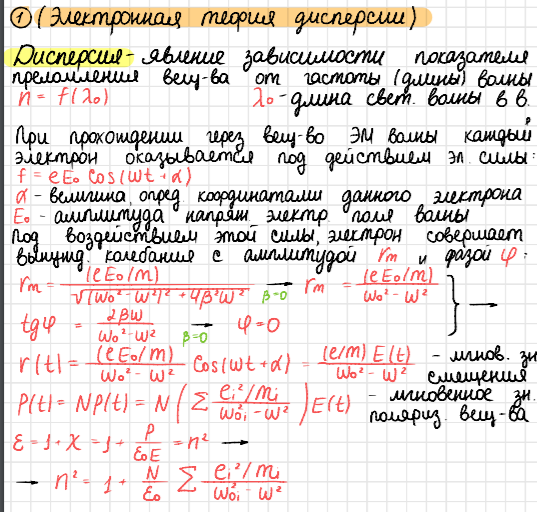 ① (Электронная теория дисперсии)
Дисперсия - явление зависимости показателя
преломления вещ-ва от частоты (длины) волны
n = f(λ₀) λ₀ - длина свет. волны в в.
При прохождении через вещ-во ЭМ волны каждый
электрон оказывается под действием эл. силы:
f = eE₀ cos(ωt + α)
α - величина, опред. координатами данного электрона
E₀ - амплитуда напряж. электр. поля волны
Под воздействием этой силы, электрон совершает
вынужд. колебания с амплитудой rm и фазой φ:
rm = (eE₀/m) / √((ω₀² - ω²)² + 4β²ω²) →β=0 rm = (eE₀/m) / (ω₀² - ω²) } →
tgφ = 2βω / (ω₀² - ω²) →β=0 φ = 0
r(t) = (eE₀/m) / (ω₀² - ω²) cos(ωt + α) = (e/m) E(t) / (ω₀² - ω²) - мгнов. зн. смещения
P(t) = NP(t) = N ( Σ (eᵢ²/mᵢ) / (ω₀ᵢ² - ω²) ) E(t) - мгновенное зн. поляриз. вещ-ва
ε = 1 + χ = 1 + P / (ε₀E) = n² →
→ n² = 1 + N/ε₀ Σ (eᵢ²/mᵢ) / (ω₀ᵢ² - ω²)